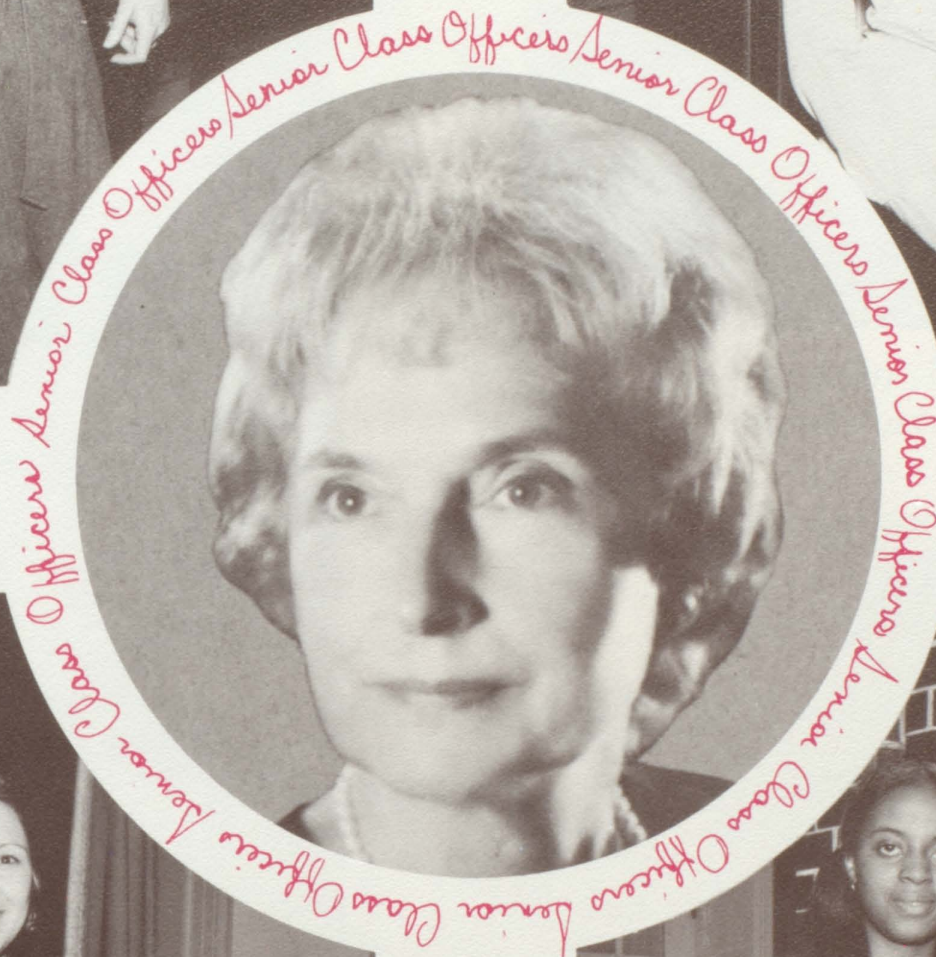 Senior Class Officers Senior Class Officers Senior Class Officers Senior Class Officers Senior Class Officers Senior Class Officers Senior Class Officers